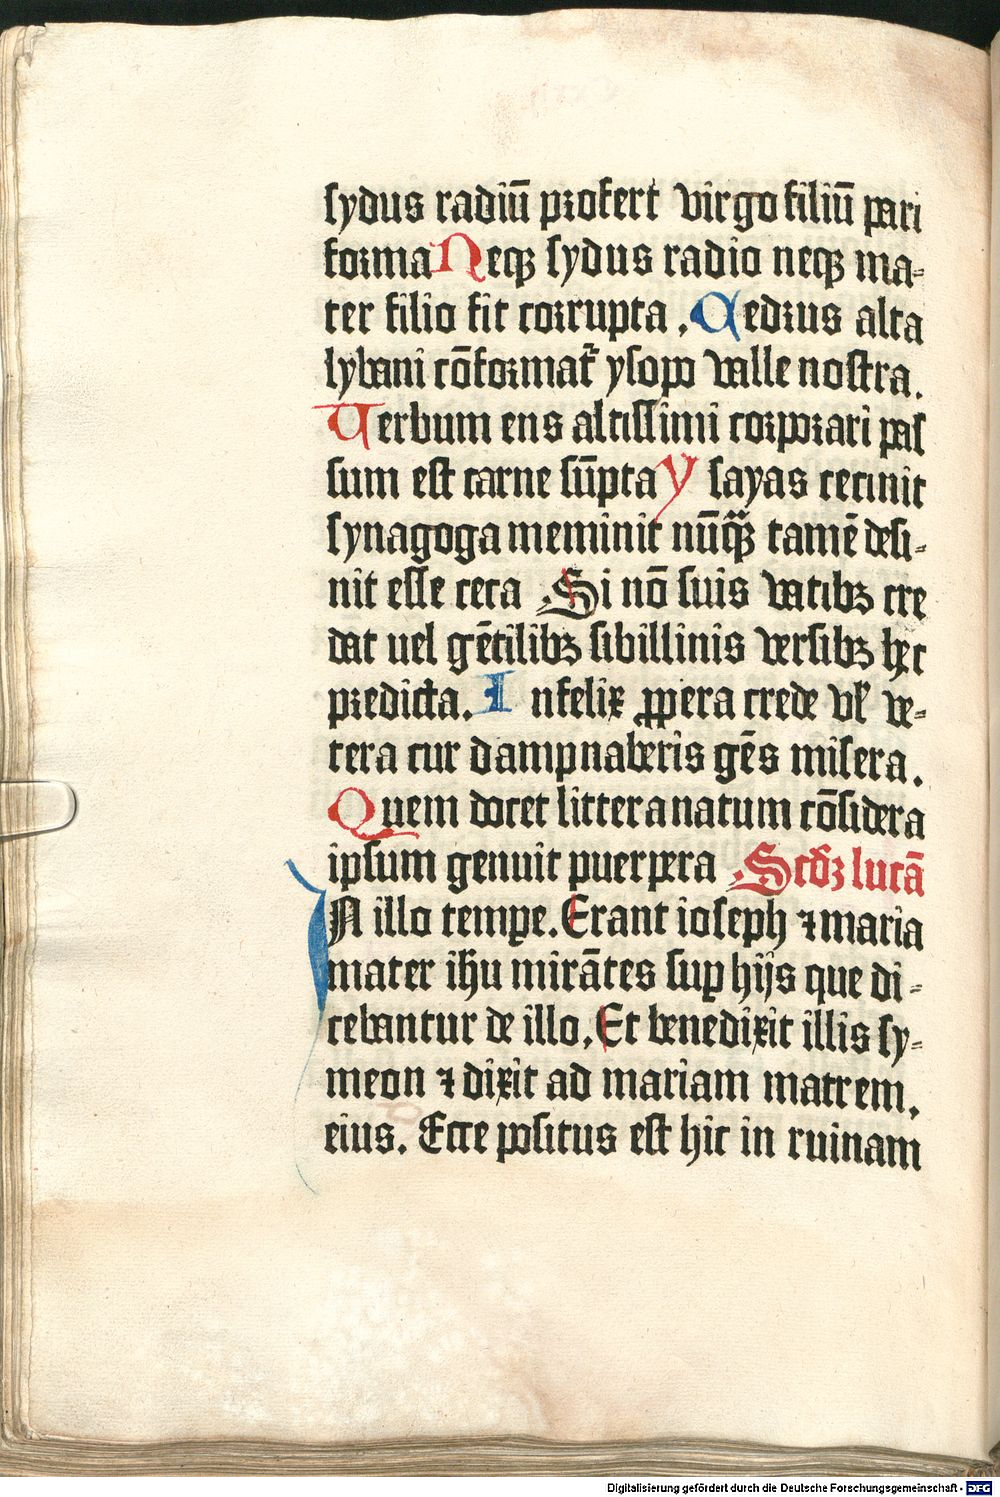 sydus radiū profert virgo filiū pari
forma Neqꝫ sydus radio neqꝫ ma-
ter filio fit corrupta. Cedrus alta
lybani cōformat̄ ysopo valle nostra.
Verbum ens altissimi corporari pas
sum est carne sūpta Ysayas cecinit
synagoga meminit nūqꝫ tamē desi-
nit esse ceca Si nō suis vatibꝫ cre
dat uel gētilibꝫ sibillinis versibꝫ hec
predicta. Infelix ꝓpera crede vl̓ ve-
tera cur dampnaberis gēs misera.
Quem docet littera natum cōsidera
ipsum genuit puerpera Scd̓ꝫ lucā
IN illo tempe. Erant ioseph ⁊ maria
mater ih̄u mirātes suꝑ hijs que di-
cebantur de illo. Et benedixit illis sy-
meon ⁊ dixit ad mariam matrem.
eius. Ecce positus est hic in ruinam
Digitalisierung gefördert durch die Deutsche Forschungsgemeinschaft - DFG